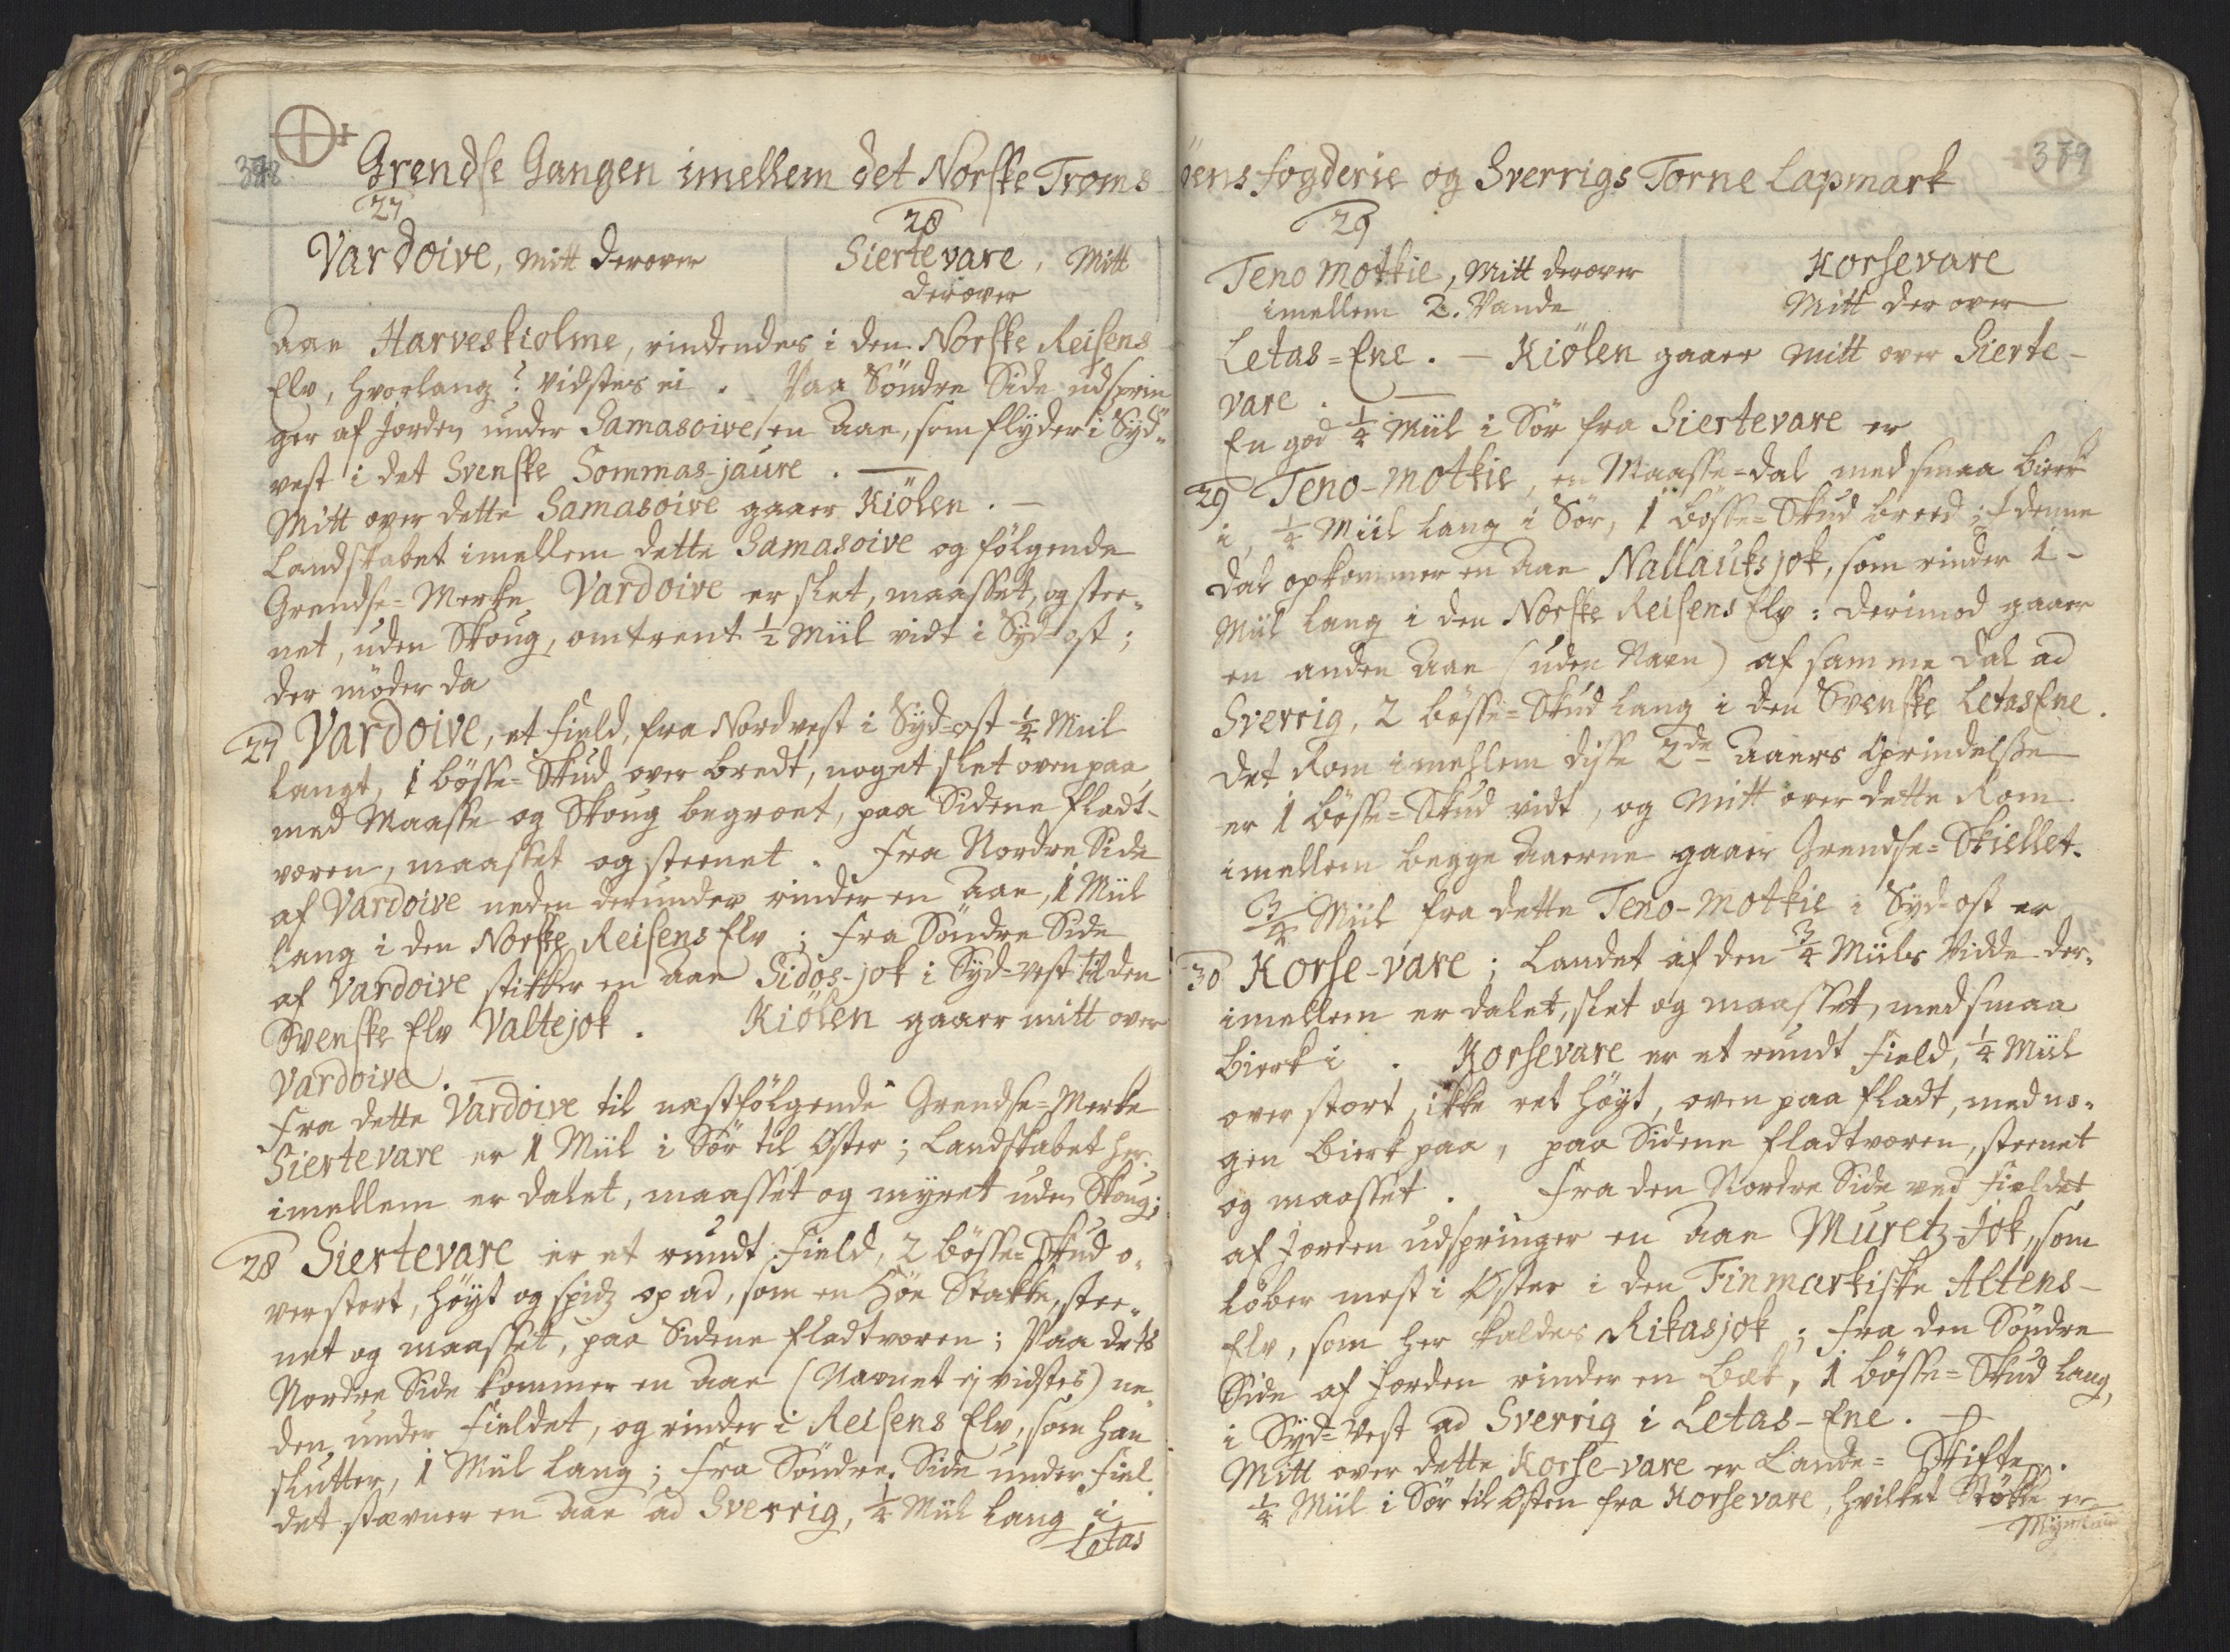 378
Grendse Gangen imellem det Norske Troms
27
28
Vardoive, mitt derover
Siertevare, Mitt
derover
Aae Harveskiolme, rindendes i den Norske Reisens
Elv, hvorlang? vidstes ei. Paa Söndre Side udsprin
ger af Jorden under Samasoive, en Aae, som flyder i Syd-
vest i det Svenske Sommas-jaure. —
Mitt over dette Samasoive gaaer Kiölen. —
Landskabet imellem dette Samasoive og fölgende
Grendse=Merke Vardoive er slet, maasset, og stee-
net, uden Skoug, omtrent ½ Miil vidt i Syd-ost;
der möder da
27 Vardoive, et Field, fra Nordvest i Syd-ost ¼ Miil
langt, 1 bösse=Skud over bredt, noget slet oven paa,
med Maasse og Skoug begroet, paa Sidene fladt-
voren, maasset og steenet. Fra Nordre Side
af Vardoive neden derunder rinder en Aae, 1 Miil
lang i den Norske Reisens Elv; fra Söndre Side
af Vardoive stikker en Aae Sidos-jok i Syd-vest til den
Svenske Elv Valtejok. Kiölen gaaer mitt over
Vardoive. —
Fra dette Vardoive til næstfölgende Grendse=Merke
Siertevare er 1 Miil i Sör til Öster; Landskabet her-
imellem er dalet, maasset og myret uden Skoug;
28 Siertevare er et rundt Field, 2 bösse=Skud o-
ver stort, höyt og spidz op ad, som en Höe Stakke, stee-
net og maasset, paa Sidene fladtvoren; Paa dets
Nordre Side kommer en Aae (Navnet ej vidstes) ne
den under Fieldet, og rinder i Reisens Elv, som han
slutter, 1 Miil lang; fra Söndre Side under Fiel
det stævner en Aae ad Sverrig, ¼ Miil lang i
Letas
öens fogderie og Sverrigs Torne Lapmark
379
29
Teno Motkie, Mitt derover
imellem 2. Vande
Korsevare
Mitt der over
Letas=Ene. — Kiölen gaaer mitt over Sierte-
vare. —
En god ¼ Miil i Sör fra Siertevare er
29 Teno-Motkie, en Maasse=dal med smaa bierk
i, ¼ Miil lang i Sör, 1 bösse=Skud breed; I denne
dal opkommer en Aae Nallauksjok, som rinder 1 -
Miil lang i den Norske Reisens Elv: derimod gaaer
en anden Aae (uden Navn) af samme dal ad
Sverrig, 2 bösse=Skud lang i den Svenske Letas Ene.
det Rom imellem disse 2de Aaers Oprindelse
er 1 bösse=Skud vidt, og mitt over dette Rom
imellem begge Aaerne gaaer Grendse=Skiellet.
¾ Miil fra dette Teno-Motkie i Syd-ost er
30 Korse-vare; Landet af den ¾ Miils Vidde der-
imellem er dalet, slet og maasset, med smaa
bierk i. Korsevare er et rundt Field, ¼ Miil
over stort, ikke ret höyt, oven paa fladt, med no-
gen bierk paa, paa Sidene fladtvoren, steenet
og maasset. Fra den Nordre Side ved Fieldet
af Jorden udspringer en Aae Muretz-Jok, som
löber mest i Öster i den Finmarkiske Altens-
Elv, som her kaldes Rikasjok; fra den Söndre
Side af Jorden rinder en bæk, 1 bösse=Skud lang,
i Syd=Vest ad Sverrig i Letas-Ene. —
Mitt over dette Korse-vare er Lande=Skifte.
¼ Miil i Sör til Östen fra Korsevare, hvilket Stökke er